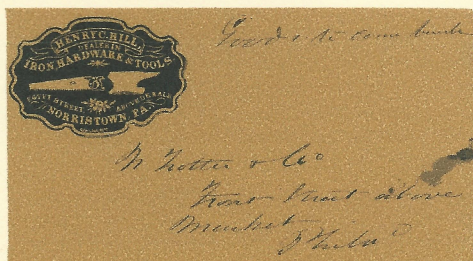 HENRY C. HILL,
DEALER IN
IRON, HARDWARE & TOOLS,
STREET,
NORRISTOWN, PA.
Goods to come
& Co
Front Street above
Market
Phila